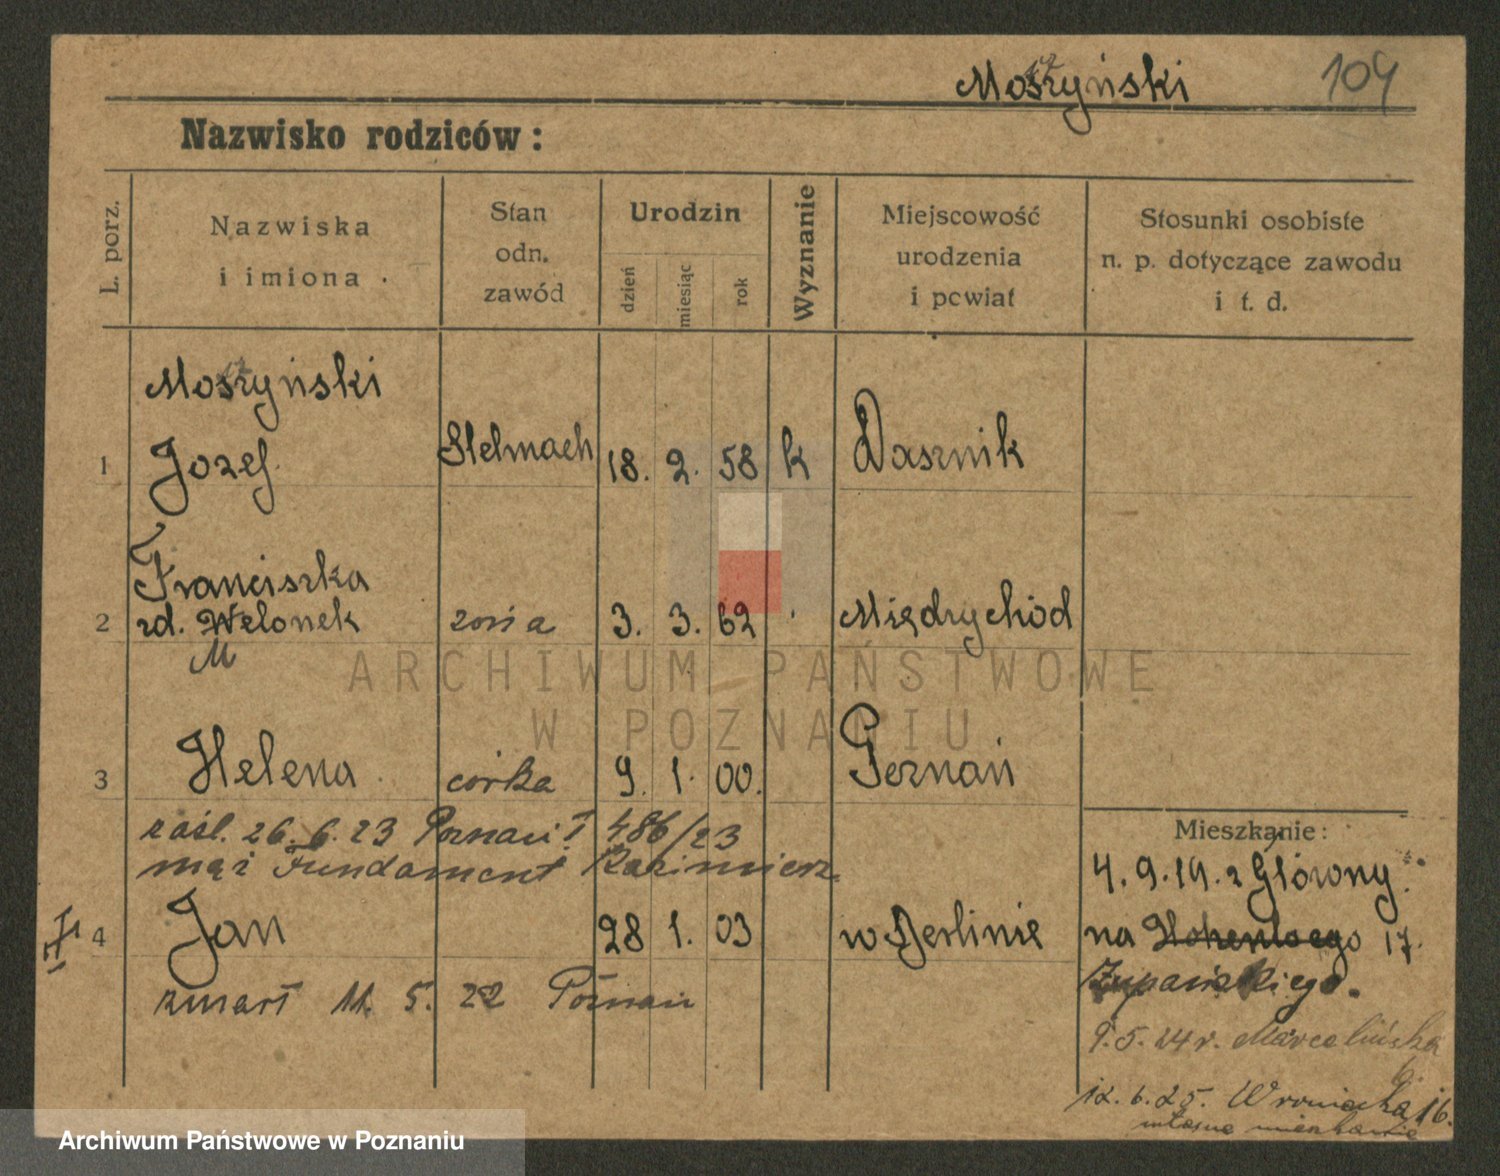 Moszyński 104
Nazwisko rodziców:
L. porz.
Nazwiska
i imiona
Stan
odn.
zawód
Urodzin
dzień
miesiąc
rok
Wyznanie
Miejscowość
urodzenia
i powiat
Stosunki osobiste
n. p. dotyczące zawodu
i t. d.
Moszyński
1 Jozef Stelmach 18. 2. 58 k Dasznik
Franciszka
2 zd. Welonek żona 3. 3. 62 Międzychód
M
3 Helena córka 9. 1. 00. Poznań
zaśl. 26. 6. 23 Poznań I 486/23
mąż Fundament Kazimierz.
4 Jan 28 1. 03 w Berlinie
zmarł 11. 5. 22 Poznań
Mieszkanie:
4. 9. 19. z Głowny.
na Hohenloego 17.
Zupańskiego.
9. 5. 24 r. Marcelińska
12. 6. 25. Wroniecka 16.
własne mieszkanie
ARCHIWUM PAŃSTWOWE
W POZNANIU
Archiwum Państwowe w Poznaniu